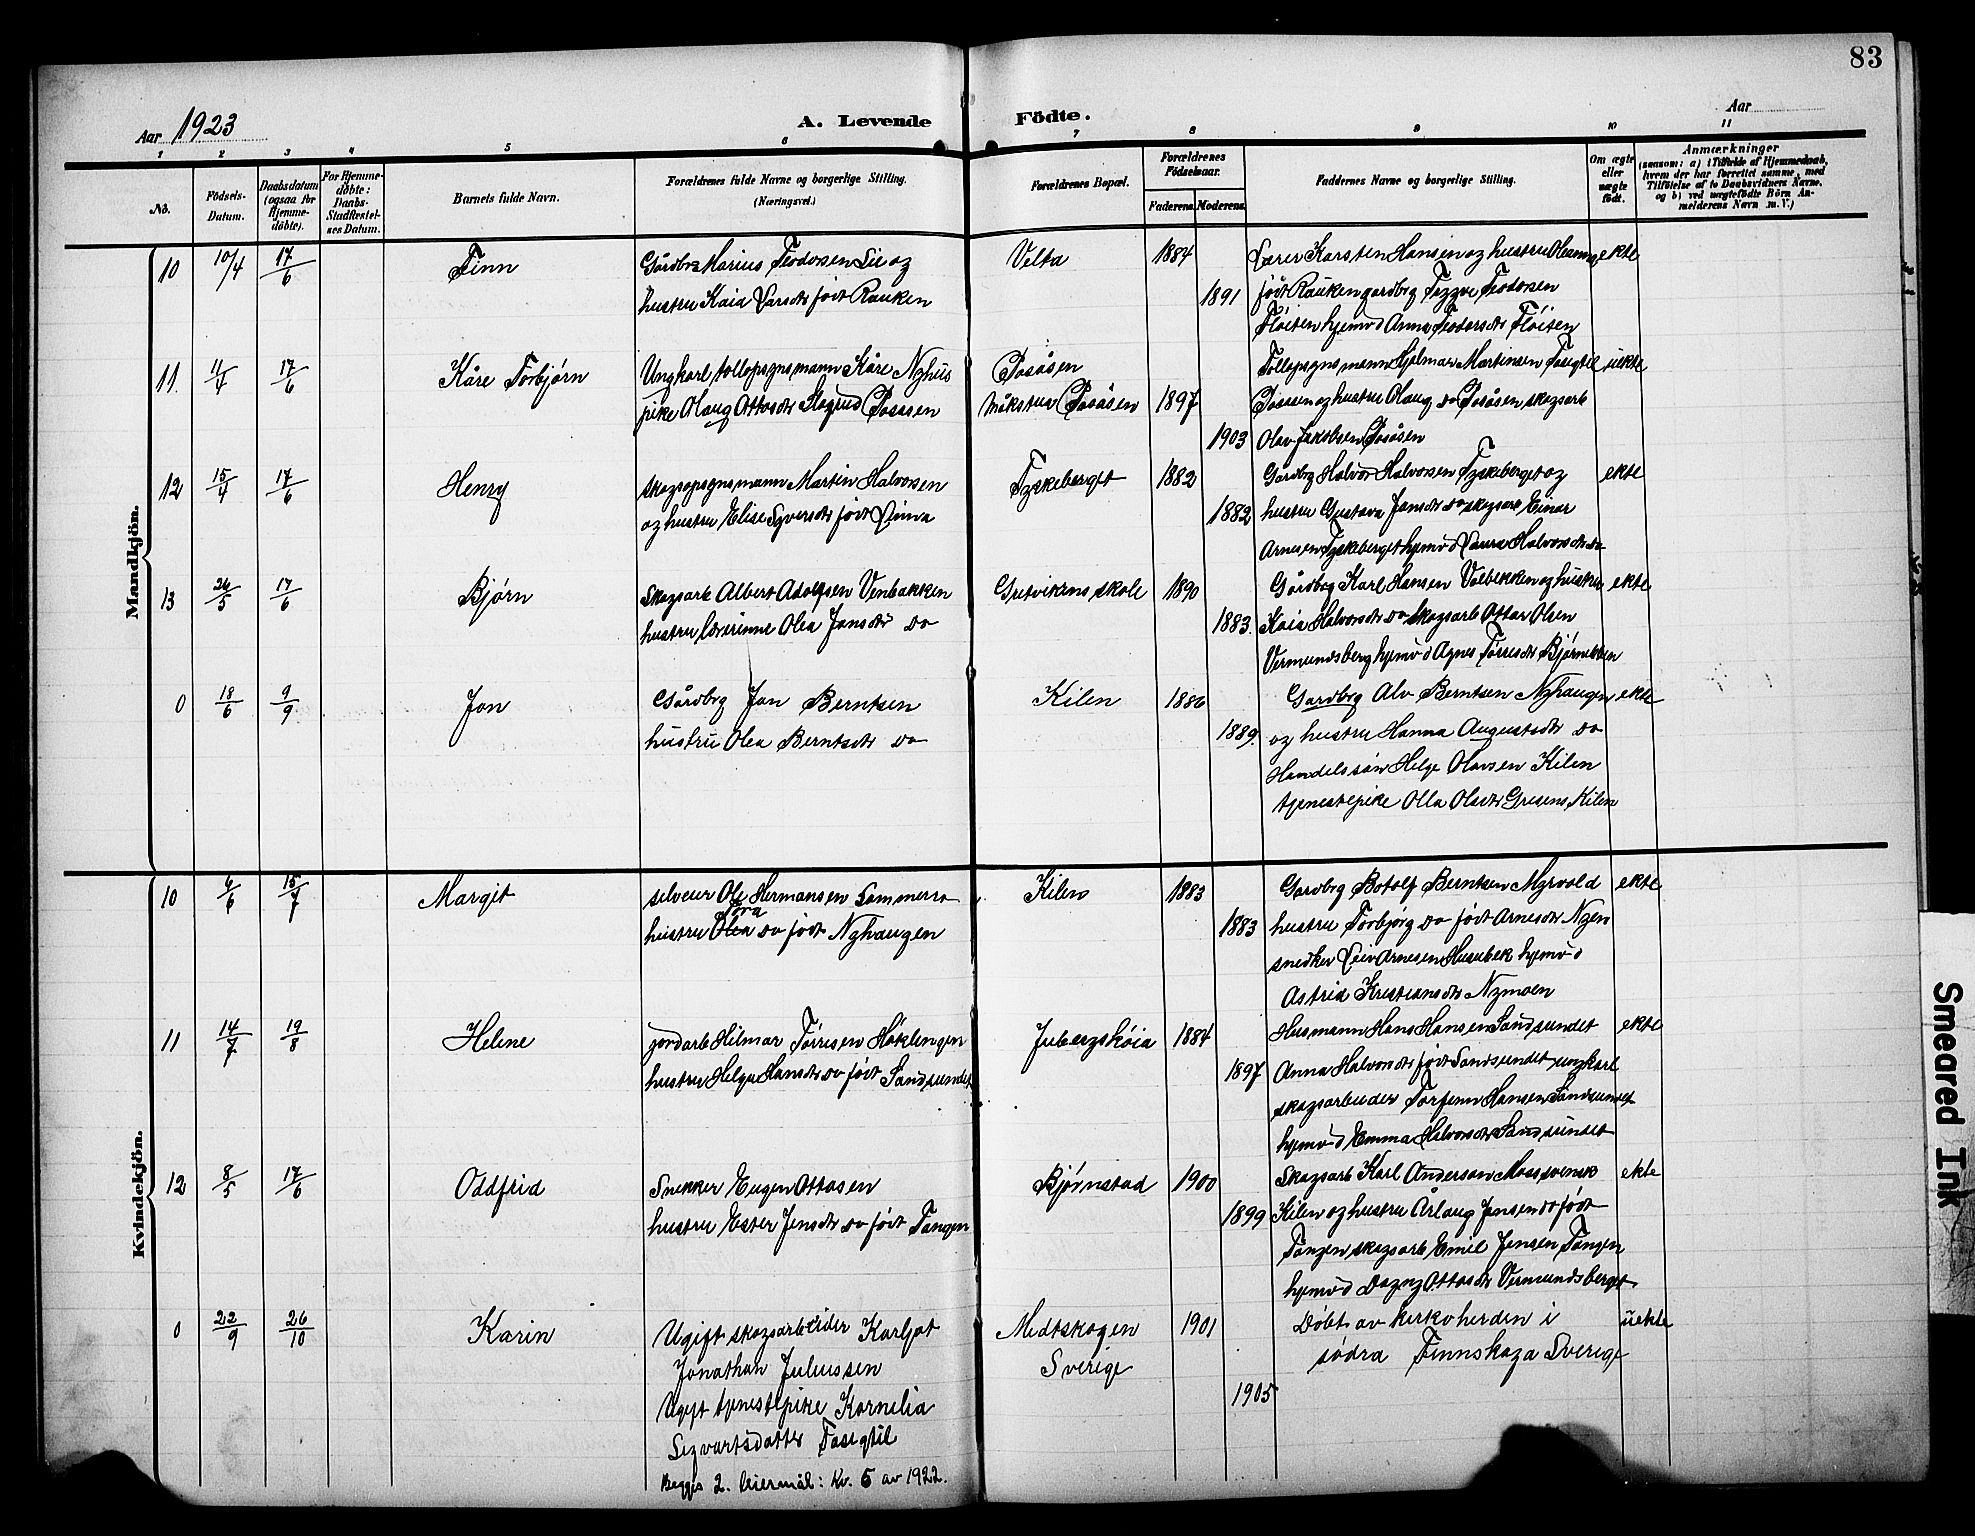 83
Aar 1923
A. Levende Födte.
Aar
1 2 3 4 5 6 7 8 9 10 11
No.
Födsels-Datum.
Daabsdatum (ogsaa for Hjemme-döbte).
For Hjemme-döbte: Daabs-Stadfestel-ses Datum.
Barnets fulde Navn.
Forældrenes fulde Navne og borgerlige Stilling. (Næringsvei.)
Forældrenes Bopæl.
Forældrenes Födselsaar.
Faderens. Moderens.
Faddernes Navne og borgerlige Stilling.
Om ægte eller uægte født.
Anmærkninger
(saasom: a) i Tilfælde af Hjemmedaab, hvem der har forrettet samme, med Tilföielse af to Daabsvidners Navne, og b) ved uægtefödte Börn Anmelderens Navn m. V.)
Mandkjön.
10 10/4 17/6 Finn
Gårdbr Marius Teodorsen Lie og
hustru Kaia Larsdtr født Rauken
Velta 1884 1891
Lærer Karsten Hansen og hustru ekte
født Rauken gardbrg Teodorsen
Fløiten hjemv d Anna Teodorsdtr Fløiten
11. 11/4 17/6 Kåre Torbjørn
Ungkarl tollopsgnsmann Kåre Nyhus
pike Olaug Ottosdtr Posåsen
Posåsen
Posåsen 1897
1903
Tollopsgnsmann Hjelmar Martinsen uekte
og hustru Olaug do Posåsen skogsarb
Olav Jakobsen Posåsen
12 15/4 17/6 Henry
skogsopsgnsmann Martin Halvorsen
og hustru Elise Syversdtr født Linna
Tyskeberget 1882
1882
Gardbrg Halvor Halvorsen Tyskeberget og ekte
hustru Gustava Jonsdtr do skogsarb Einar
Arnesen Tyskeberget hjemv d Laura Halvorsdtr do
13 26/5 17/6 Bjørn
Skogsarb Albert Adolfsen Venbakken
hustru lærerinne Olea Jonsdtr do
Gretvikens skole 1890
1883.
Gårdbrg Karl Hansen Volbekken og hustru ekte
Kaia Halvorsdtr do skogsarb Ottar Olsen
Vermundsberg hjemv d Agnes Tørresdtr Bjørnebben
0 18/6 9/9 Jon
Gårdbrg Jon Berntsen
hustru Olea Berntsdtr do
Kilen 1886
1889.
Gardbrg Alv Berntsen Nyhaugen ekte
og hustru Hanna Augustsdtr do
Handelsmann Helge Olavsen Kilen
tjenestepike Olla Olsdtr Gresens, Kilen
Kvindekjön.
10 6/6 15/7 Margit
selveier Ole Hermansen Sommerro
Tora
hustru Olea do født Nyhaugen
Kilen 1883
1883
Gardbrg Botolf Berntsen Myrvold ekte
hustru Torbjørg do født Arnesdtr Nyen
snedker Leiv Arnesen Husubek hjemv d
Astrid Kristiansdtr Nymoen
11 14/7 19/8 Helene
jordarb Hilmar Tørrisen Høklingen
hustru Helga Hansdtr do født Sandsundet
Jubergskøia 1884
1897
Husmann Hans Hansen Sandsundet ekte
Anna Halvorsdtr født Sandsundet ungkarl
skogsarbeider Torfinn Hansen Sandsundet
hjemv d Emma Halvorsdtr Sandsundet
12 8/5 17/6 Oddfrid
Snekker Eugen Ottosen
hustru Ester Jensdtr do født Tangen
Bjørnstad 1900
1899
Skogsarb Karl Anderson Mossvensk ekte
Kilen og hustru Årlaug Jensen do født
Tangen skogsarb Emil Jensen Tangen
hjemv d Dagny Ottosdtr Vermundsberget
0 22/9 26/10 Karin
Ugift skogsarbeider Karljot
Jonathan Juliussen
Ugift tjenestepike Kornelia
Sigvartsdatter Tosegtil
Begges 2. leiermål: Kv. 5 av 1922.
Medtskogen
Sverige
1901
1905
Døbt av kyrkoherden i uekte
södra Finnskoga Sverige
Smeared Ink